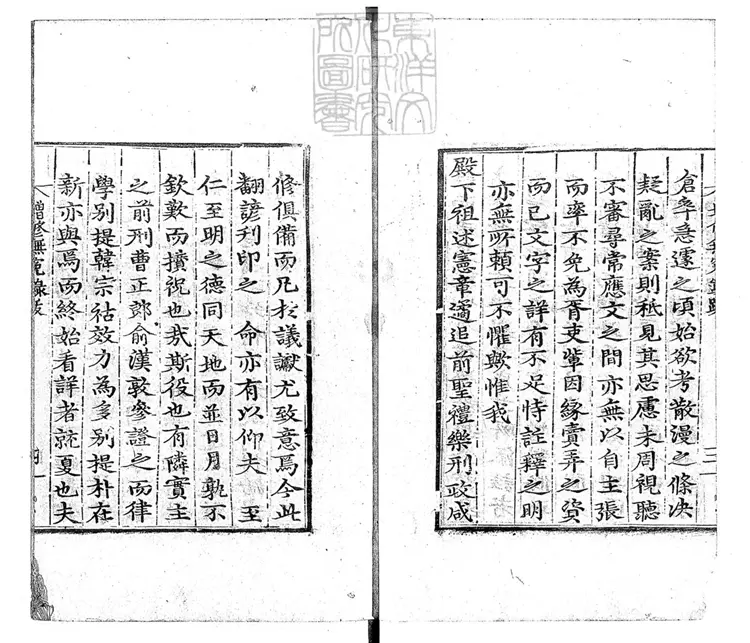 倉卒急遽之頃始欲考散漫之條決
疑亂之案則秪見其思慮未周視聽
不審尋常應文之間亦無以自主張
而率不免為胥吏輩因緣賣弄之資
而已文字之詳有不足恃註釋之明
亦無所賴可不懼歟惟我
殿下祖述憲章遹追前聖禮樂刑政咸
修俱備而凡於議讞尤致意焉今此
翻諺刊印之 命亦有以仰夫 至
仁至明之德同天地而並日月孰不
欽歎而攢祝也哉斯役也有隣實主
之前刑曹正郎俞漢敦參證之而律
學別提韓宗祜效力為多別提朴在
新亦與焉而終始看詳者訧夏也夫
增修無冤錄跋
四
東洋文
化研究
所圖書